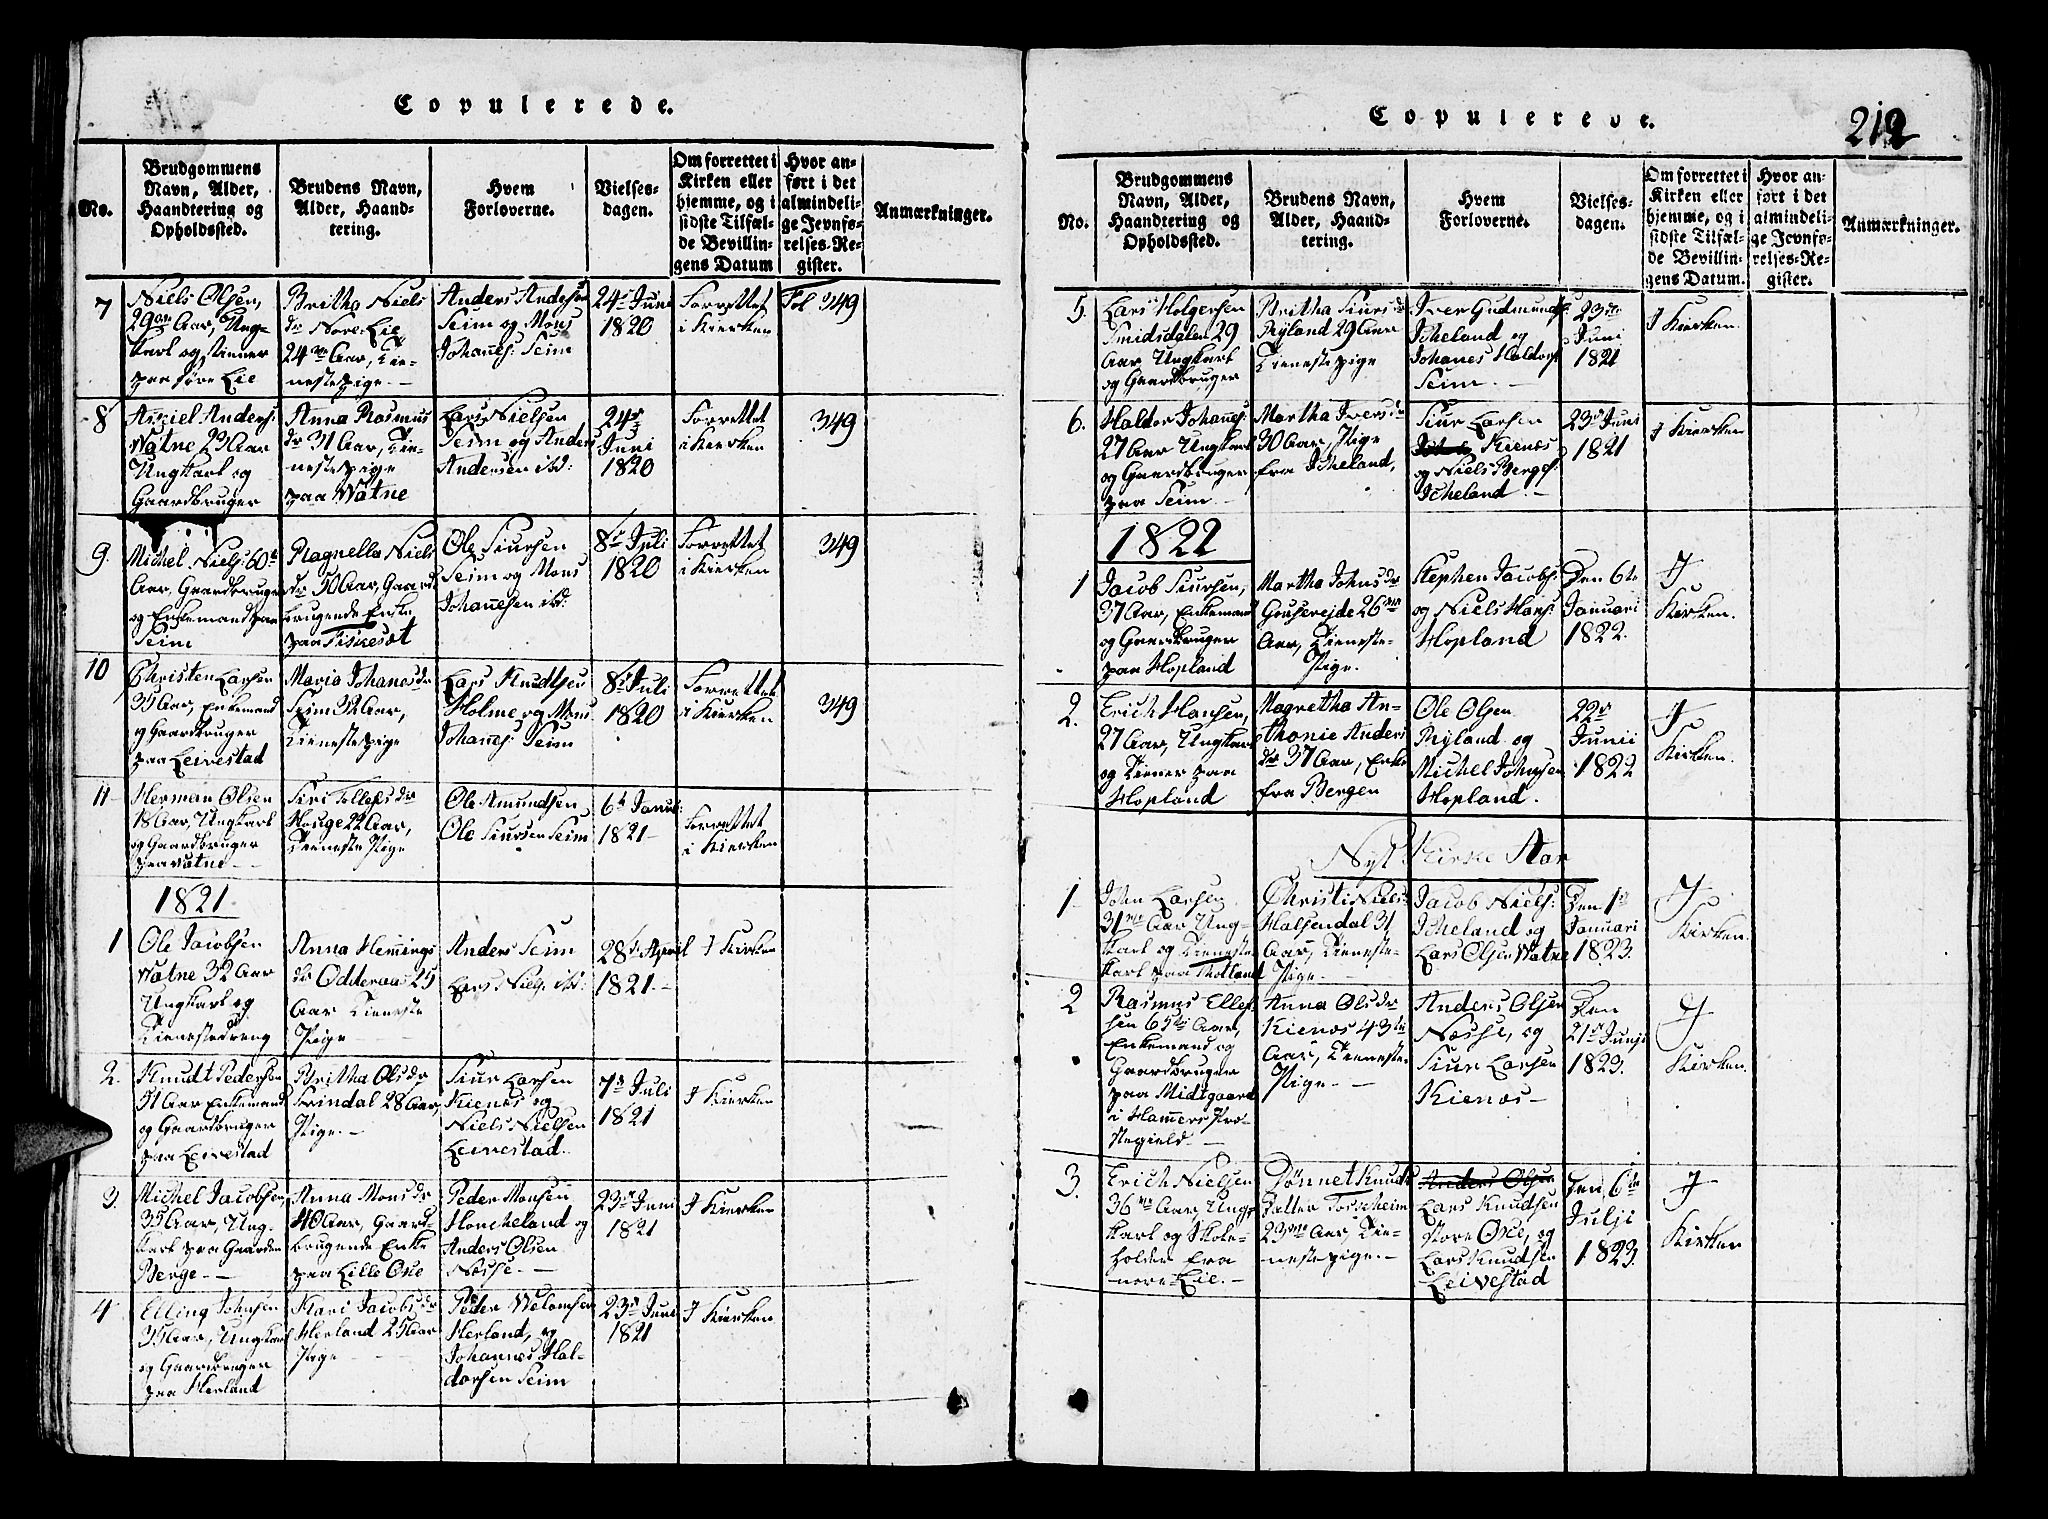 Copulerede.
No.
Brudgommens
Navn, Alder,
Haandtering og
Opholdssted.
Brudens Navn,
Alder, Haand-
tering.
Hvem
Forloverne.
Vielses-
dagen.
Om forrettet i
Kirken eller
hjemme, og i
sidste Tilfæl-
de Bevillin-
gens Datum
Hvor an-
ført i det
almindeli-
ge Jevnfø-
relses-Re-
gister.
Anmærkninger.
7
Niels Olsen,
Aar, Ung-
karl og tiener
paa Lie
Britha Niels
dr Nore Lie
24 Aar, Tie-
nestepige.
Anders Anders
Seim og Mons
Johannes: Seim
24 Juni
1820
Forrettet
i Kierken
Fol 349
8
Anders:
Watne 23 Aar
Ungkarl og
Gaardbruger
Anna Rasmus
dr 31 Aar, Tie-
nestepige
paa Watne
Lars Nielsen
Seim og Anders
Andersen ibd:
24
Juni
1820
Forrettet
i Kierken
349
9.
Michel Niels: 60
Aar, Gaardbruger
og Enkemand paa
Seim
Ragnella Niels
dr 50 Aar, Gaard
brugende Enke
paa
Ole Siursen
Seim og Mons
Johannesen ibd:
8 Juli
1820
Forrettet
i Kierken
349
10
Christen Larsen
35 Aar, Enkemand
og Gaardbruger
paa Leirestad
Maria Johanes dr
Seim 32 Aar,
Tienestepige
Lars Knudtsen
Holme og Mons
Johannes: Seim
8 Juli
1820
Forrettet
i Kierken
349
11
Herman Olsen
18 Aar, Ungkarl
og Gaardbruger
paa Watne
Siri Tollefs dr
Houge 22 Aar,
Tieneste Pige
Ole Amundsen
Ole Siursen Seim
6 Janu:
1821
Forrettet
i Kierken
1821
1
Ole Jacobsen
Watne 32 Aar
Ungkarl og
Tienestedreng
Anna Hemmings
dr Odderaa 25
Aar Tieneste
Pige
Anders Seim
Lars Niels: ibd:
28 April
1821.
I Kirken
2.
Knudt Pedersen
Aar Enkemand
og Gaardbruger
paa Leirestad
Britha Ols dr
28 Aar,
Pige.
Siur Larsen
Kienes og
Niels Nielsen
Leirestad.
7 Juli
1821
I Kierken
3.
Michel Jacobsen
35 Aar, Ung-
karl paa Gaarden
Berge
Anna Mons dr
40 Aar, Gaard-
brugende Enke
paa Lille Ose
Peder Monsen
og
Anders Olsen
Nesse.
23 Juni
1821
I Kierken
4
Elling Johnsen
35 Aar, Ungkarl
og Gaardbruger
paa Herland
Kari Jacobs dr
Herland 25 Aar
Pige
Peder
Herland, og
Johannes Hal-
dorsen Seim
23 Juni
1821
I Kierken
Copulerede.
212
No.
Brudgommens
Navn, Alder,
Haandtering og
Opholdssted.
Brudens Navn,
Alder, Haand-
tering.
Hvem
Forloverne.
Vielses-
dagen.
Om forrettet i
Kirken eller
hjemme, og i
sidste Tilfæl-
de Bevillin-
gens Datum.
Hvor an-
ført i det
almindeli-
ge Jevnfø-
relses-Re-
gister.
Anmærkninger.
5.
Lars Holgersen
Smidsdalen 29
Aar Ungkarl
og Gaardbruger
Britha Siurs dr
Ryland 29 Aar
Tienestepige
Iver Gudmunds:
Icheland og
Johanes Haldors:
Seim.
23
Juni
1821
I Kierken.
6.
Haldor Johannes:
27 Aar Ungkarl
og Gaardbruger
paa Seim.
Martha Ivers dr
30 Aar, Pige
fra Icheland,
Siur Larsen
Kienes
og Niels Berges:
Icheland.
23 Juni
1821
I Kierken
1822
1
Jacob Siursen,
37 Aar, Enkemand
og Gaardbruger
paa Hopland
Martha Johns dr
26
Aar, Tieneste-
Pige.
Stephen Jacobs:
og Niels Hans:
Hopland
Den 6te
Januari
1822.
I
Kirken.
2.
Erich Hansen,
27 Aar, Ungkarl
og Tiener paa
Hopland
Magretha An-
thonie Anders
dr 37 Aar, Enke
fra Bergen
Ole Olsen
Ryland og
Michel Johnsen
Hopland.
22
Junii
1822
I
Kirken.
Nyt Kirke Aar
1
John Larsen
31 Aar Ung-
karl og Tieneste
karl paa
Christi Niels:
Halsendal 31
Aar, Tieneste-
Pige.
Jacob Niels:
Icheland og
Lars Olsen Watne
Den 1
Januari
1823.
I
Kirken.
2
Rasmus Ellef-
sen 65 Aar,
Enkemand og
Gaardbruger
paa Midtgaard
i Hammers Præ-
stegield.
Anna Ols dr
Kienes 43
Aar, Tieneste-
Pige.
Anders Olsen
Nesse, og
Siur Larsen
Kienes
Den
21 Junji
1823.
I
Kirken.
3.
Erich Nielsen
36 Aar, Ung-
karl og Skole-
holder fra
nore Lie.
Dønnet Knuds
Datter Tosseheim
23 Aar, Tie-
nestepige.
Anders Olsen
Lars Knudsen
store Ose, og
Lars Knudsen
Leirestad
Den 6te
Julji
1823.
I
Kirken